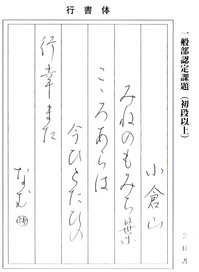 行書体
一般部認定課題(初段以上)
小倉山
みねのもみち葉
こゝろあらは
今ひとたひの
行幸また
なむ